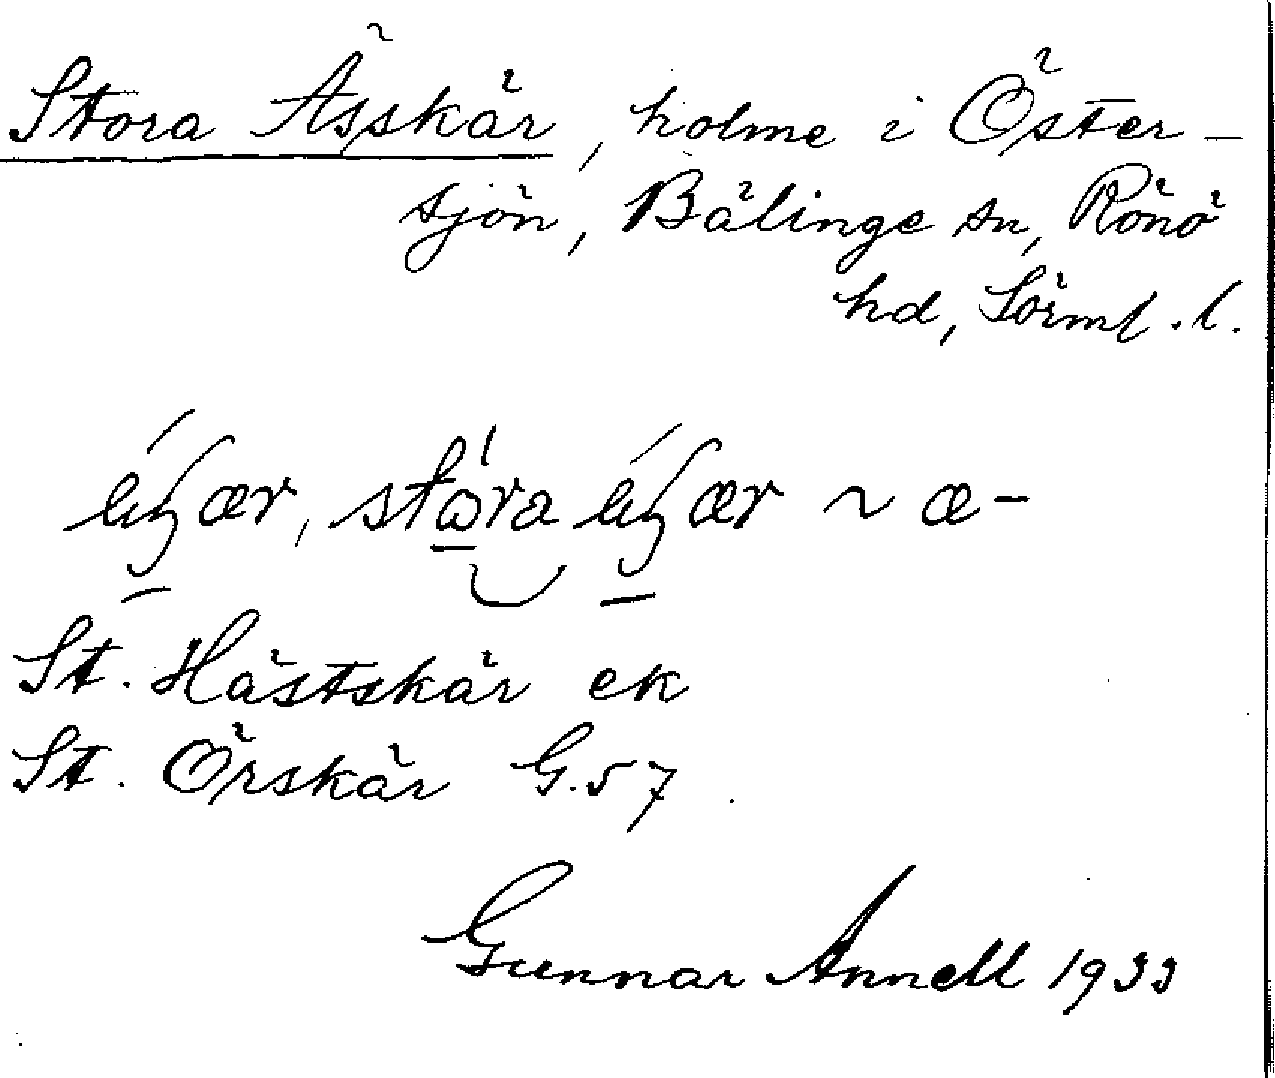 Stora Ässkär, holme i Öster-
sjön, Bälinge sn, Rönö
hd, Sörml. l.
stóra ~ æ-
St. Hästskär ek
St. Örskär G.57
Gunnar Annell 1933